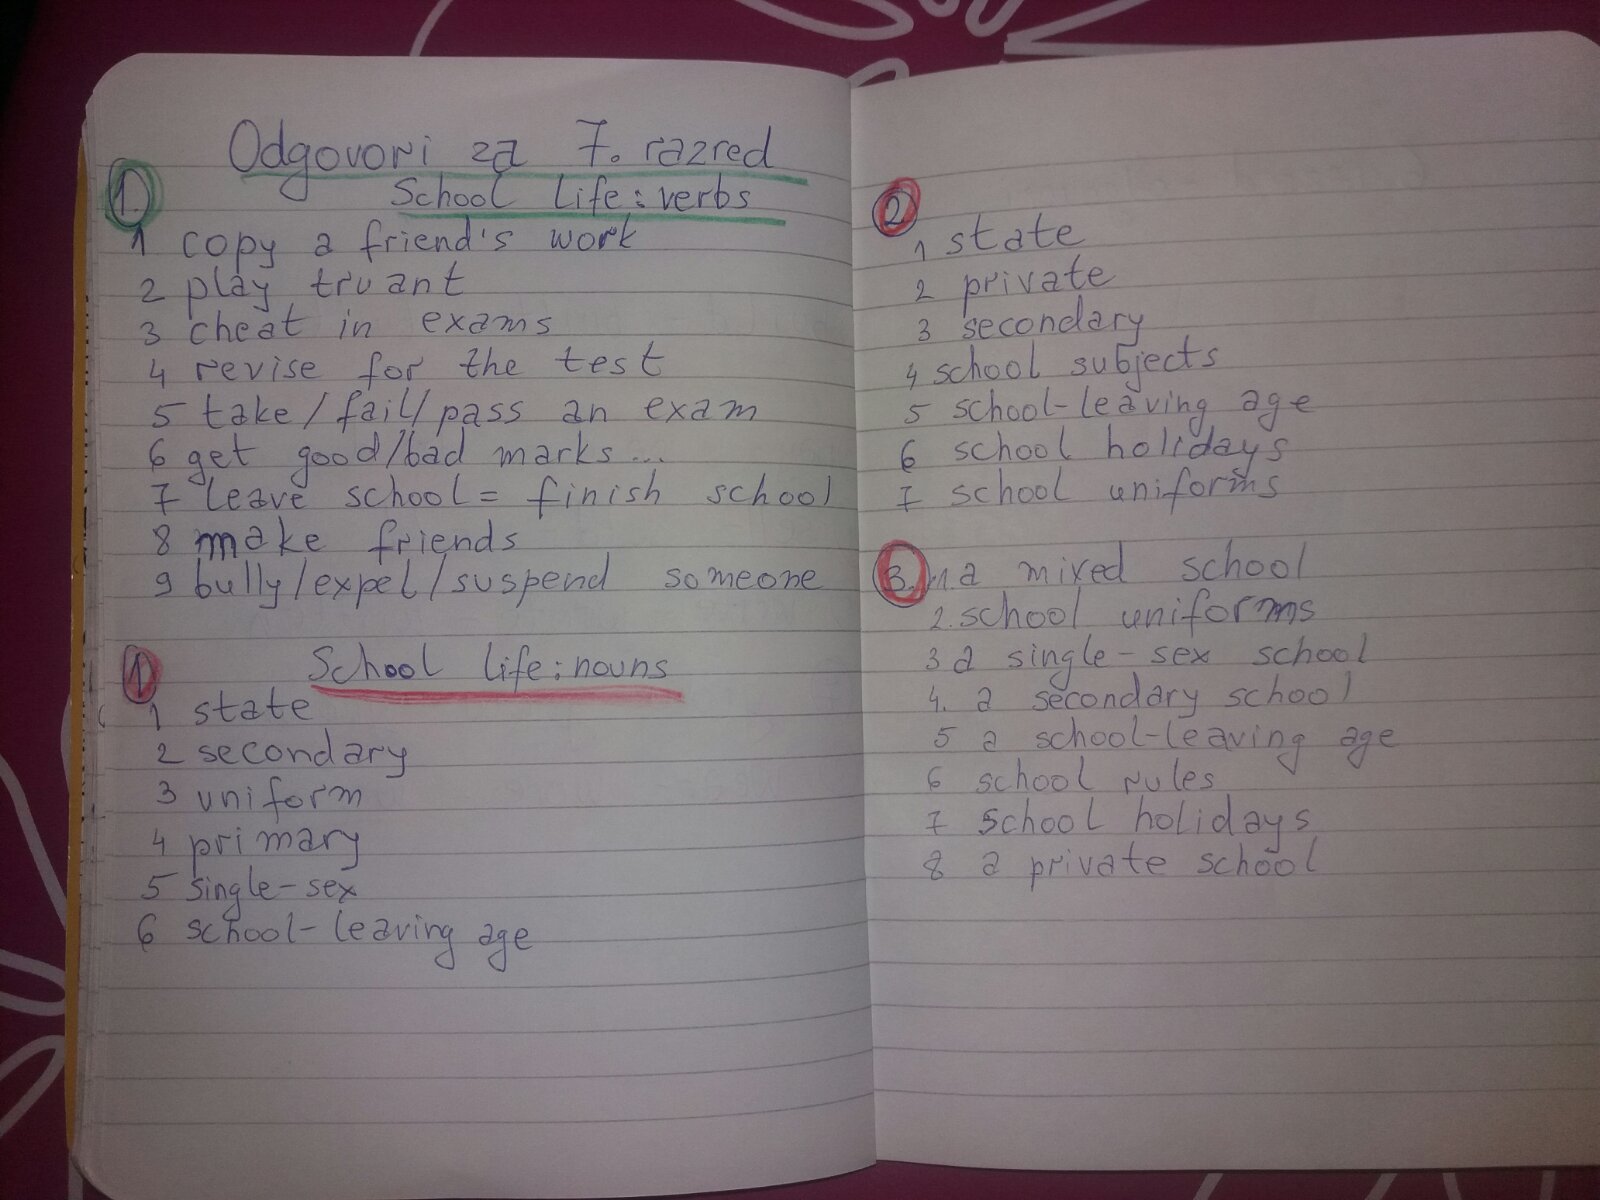 Odgovori za 7. razred
1. School life: verbs
1 copy a friend's work
2 play truant
3 cheat in exams
4 revise for the test
5 take/fail/pass an exam
6 get good/bad marks...
7 leave school = finish school
8 make friends
9 bully/expel/suspend someone
1 School life: nouns
1 state
2 secondary
3 uniform
4 primary
5 single-sex
6 school-leaving age
2
1 state
2 private
3 secondary
4 school subjects
5 school-leaving age
6 school holidays
7 school uniforms
3. 1. a mixed school
2. school uniforms
3 a single-sex school
4. a secondary school
5 a school-leaving age
6 school rules
7 school holidays
8 a private school